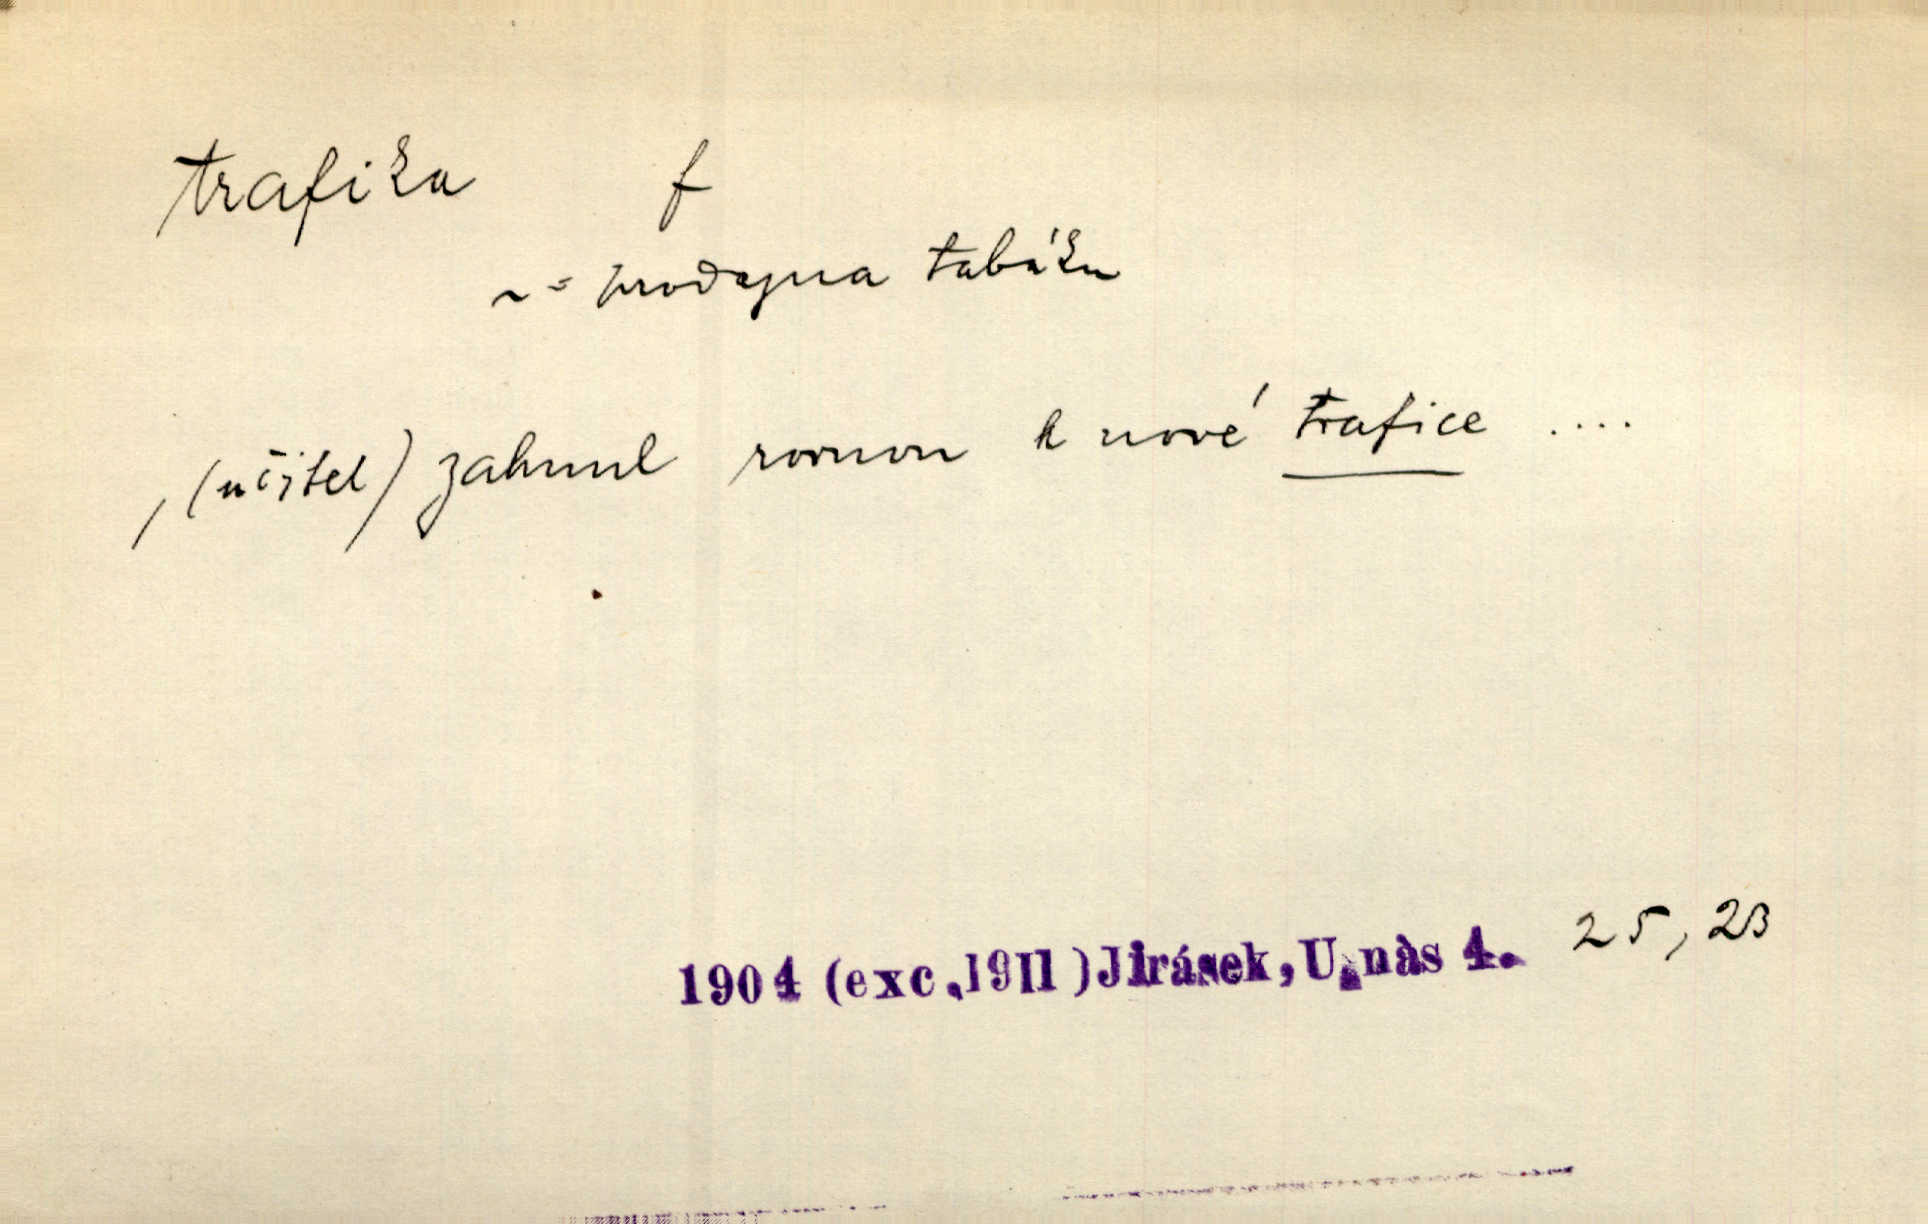 trafika f
~ = prodejna tabáku
, (učitel) zahnul rovnou k nové trafice ....
1904 (exc.1911) Jirásek, U nàs 4. 25, 23